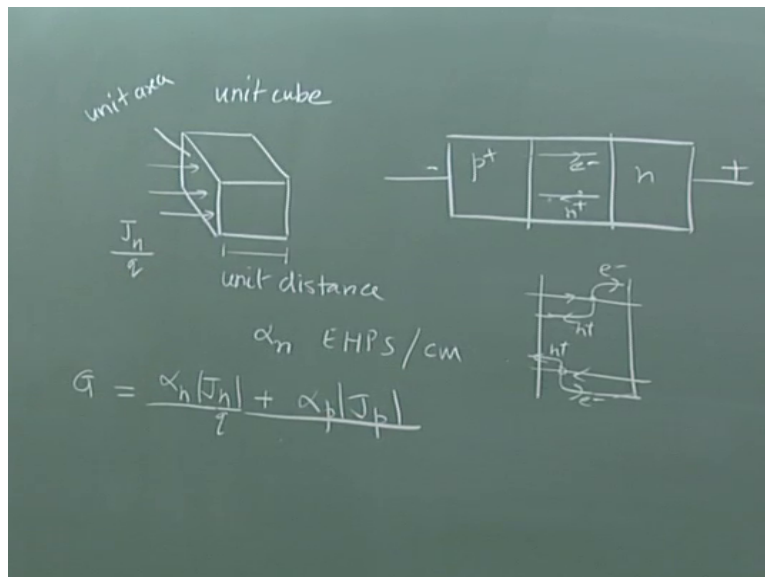 unit area
unit cube
Jn
q
unit distance
αn EHPS/cm
G = αn|Jn| + αp|Jp|
q
- p+ e- n +
h+
e-
h+
h+
e-